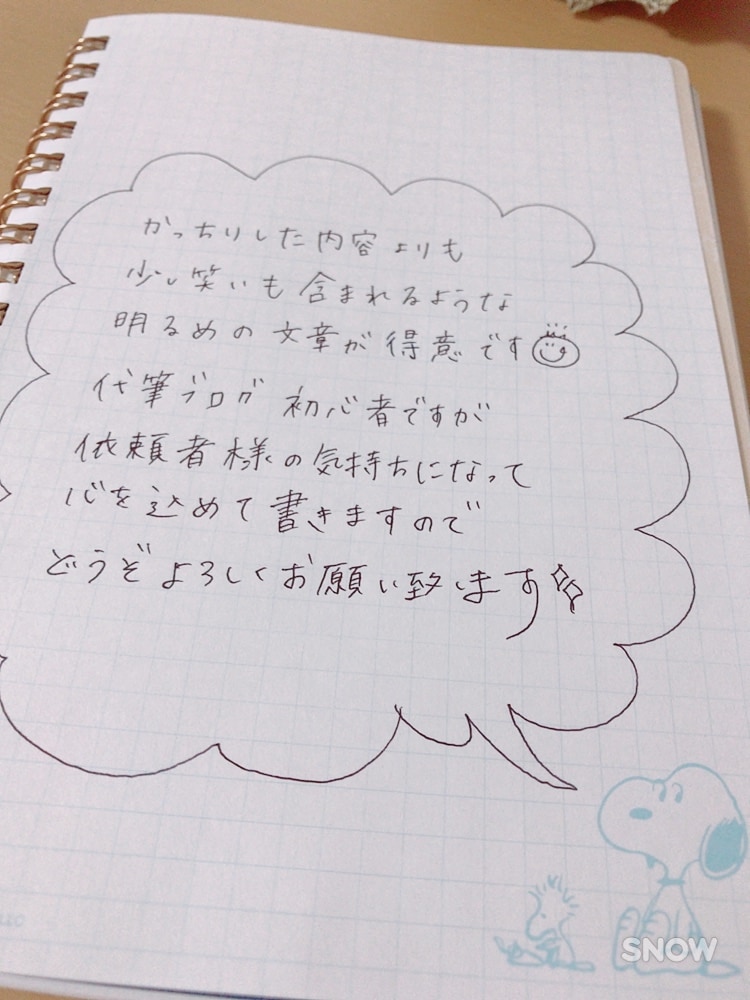 かっちりした内容よりも
少し笑いも含まれるような
明るめの文章が得意です
代筆ブログ初心者ですが
依頼者様の気持ちになって
心を込めて書きますので
どうぞよろしくお願い致します
SNOW